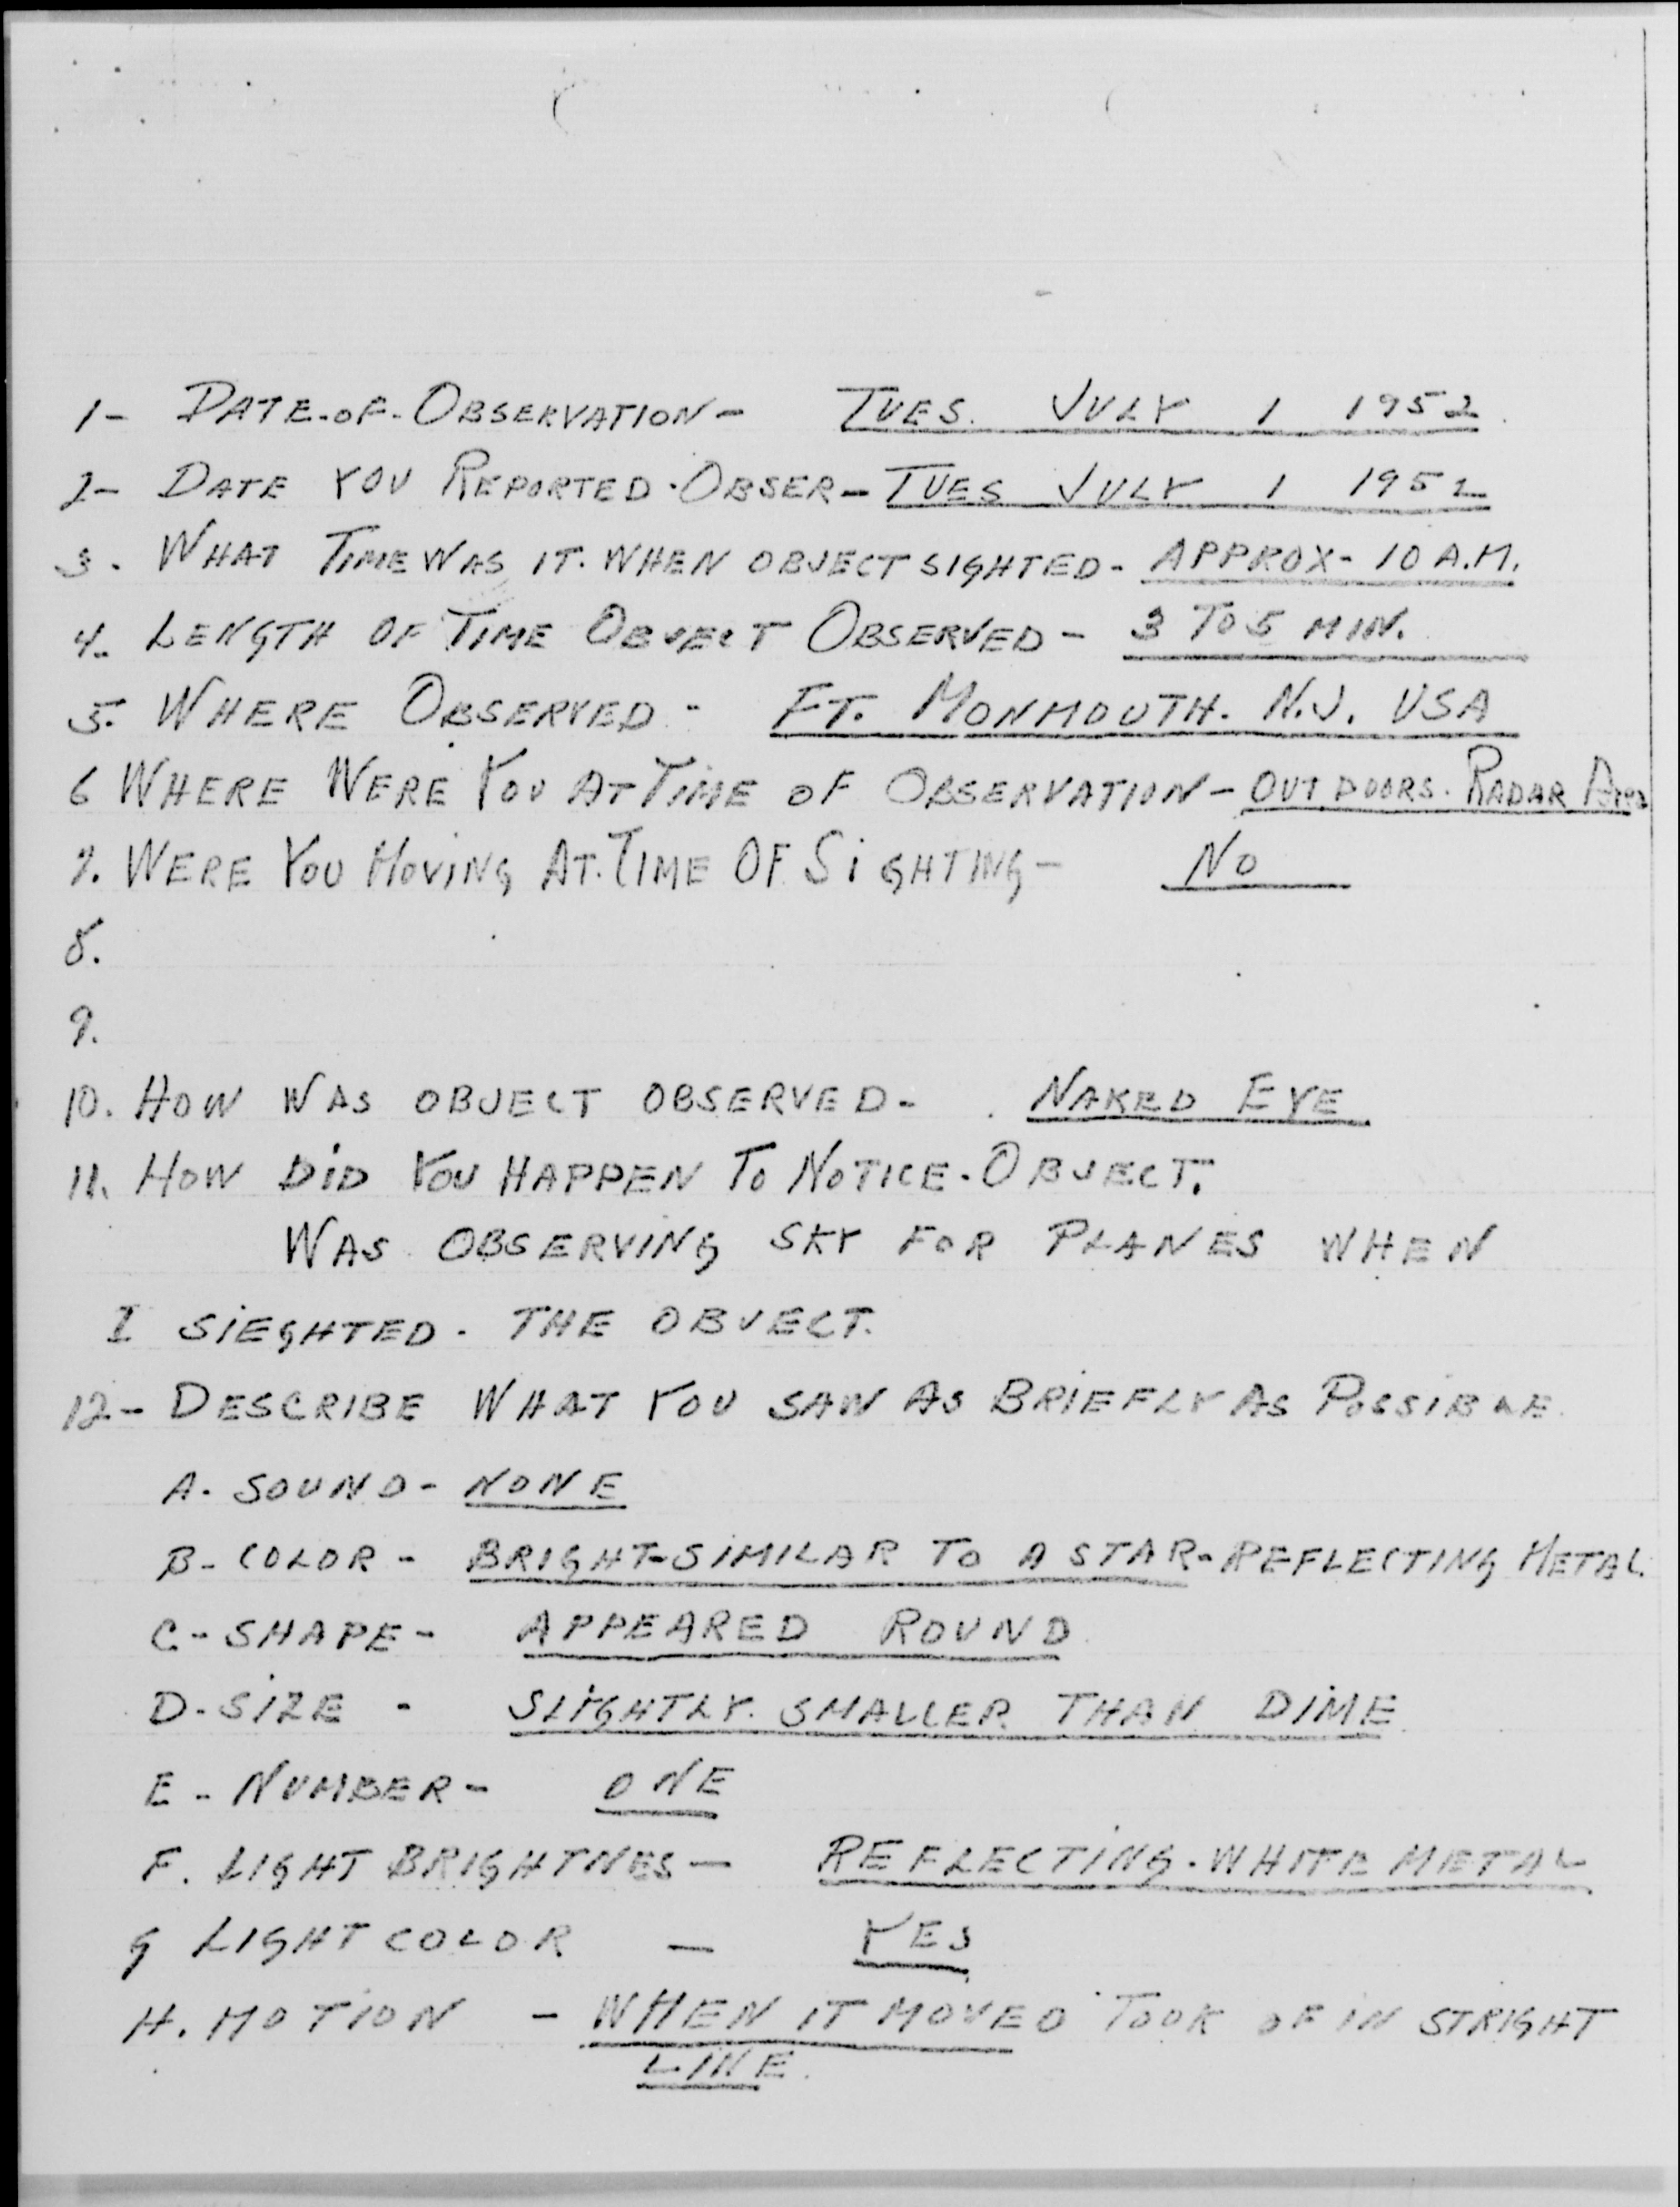 1- DATE-OF-OBSERVATION- TUES. JULY 1 1952
2- DATE YOU REPORTED-OBSER- TUES JULY 1 1952
3. WHAT TIME WAS IT. WHEN OBJECT SIGHTED- APPROX- 10 A.M.
4. LENGTH OF TIME OBJECT OBSERVED- 3 TO 5 MIN.
5. WHERE OBSERVED- FT. MONMOUTH. N.J. USA
6 WHERE WERE YOU AT TIME OF OBSERVATION- OUTDOORS. RADAR Area
7. WERE YOU MOVING AT. TIME OF SiGHTING- NO
8.
9.
10. HOW WAS OBJECT OBSERVED- NAKED EYE
11. HOW DiD YOU HAPPEN TO NOTICE-OBJECT.
WAS OBSERVING SKY FOR PLANES WHEN
I SiEGHTED. THE OBJECT.
12- DESCRIBE WHAT YOU SAW AS BRiEFLY AS POSSiBLE.
A. SOUND- NONE
B- COLOR- BRIGHT-SiMILAR TO A STAR-REFLECTING METAL.
C- SHAPE- APPEARED ROUND
D. SiZE - SLiGHTLY. SMALLER THAN DiME
E- NUMBER- ONE
F. LIGHT BRIGHTNES- REFLECTiNG. WHITE METAL
G LIGHT COLOR - YES
H. MOTION - WHEN IT MOVED TOOK OF IN STRIGHT
LINE.